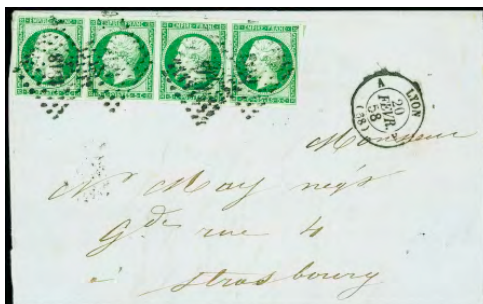 EMPIRE FRANC EMPIRE FRANC EMPIRE FRANC EMPIRE FRANC
LYON
A
20
FEVR.
58
(68)
Monsieur
May négt
Gde rue 4
à Strasbourg